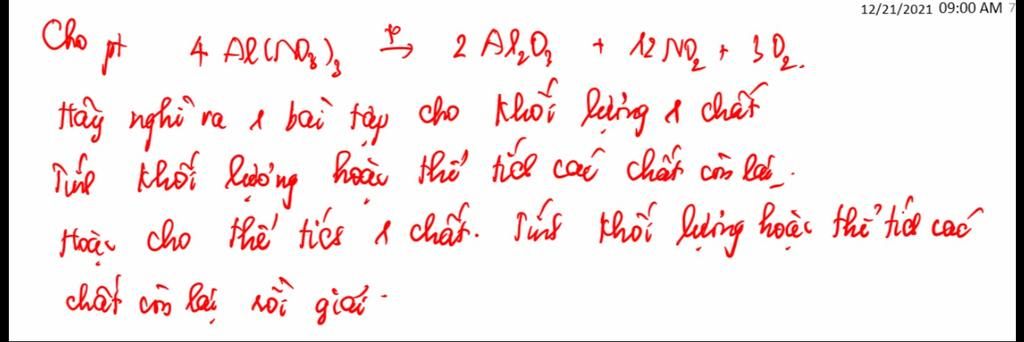 12/21/2021 09:00 AM 7
Cho pt 4 Al(NO3)3 t° → 2 Al2O3 + 12 NO2 + 3O2.
Hãy nghĩ ra 1 bài tập cho khối lượng 1 chất
Tính khối lượng hoặc thể tích các chất còn lại.
Hoặc cho thể tích 1 chất. Tính khối lượng hoặc thể tích các
chất còn lại rồi giải.